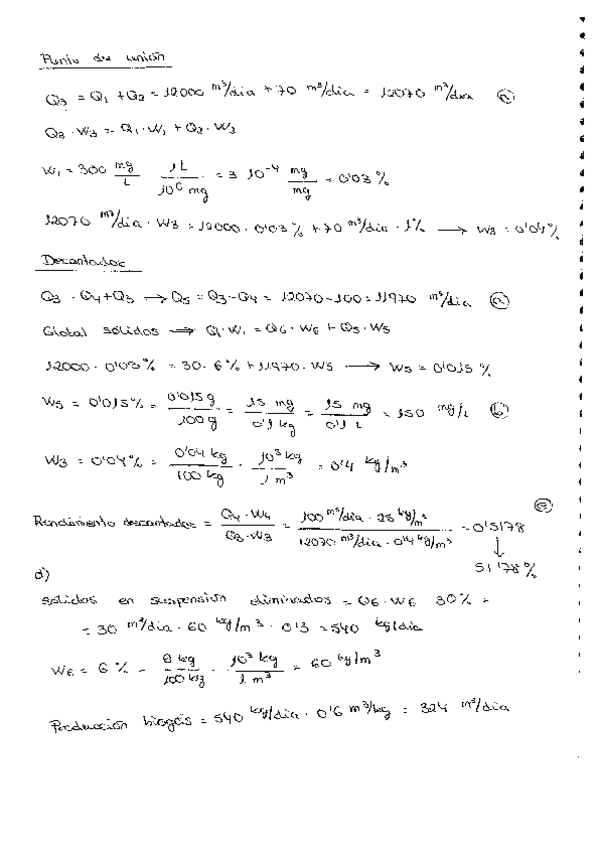 Punto de unión
Q3 = Q1 + Q2 = 12000 m³/dia + 70 m³/dia = 12070 m³/dia (a)
Q3 · W3 = Q1 · W1 + Q2 · W2
W1 = 300 mg/L · 1L/10⁶ mg = 3 10⁻⁴ mg/mg = 0'03 %
12070 m³/dia · W3 = 12000 · 0'03 % + 70 m³/dia · 1% → W3 = 0'04 %
Decantador
Q3 = Q4 + Q5 → Q5 = Q3 - Q4 = 12070 - 100 = 11970 m³/dia (a)
Global sólidos → Q1 · W1 = Q6 · W6 + Q5 · W5
12000 · 0'03 % = 30 · 6 % + 11970 · W5 → W5 = 0'015 %
W5 = 0'015 % = 0'015 g/100 g = 15 mg/0'1 kg = 15 mg/0'1 L = 150 mg/L (b)
W3 = 0'04 % = 0'04 kg/100 kg · 10³ kg/1 m³ = 0'4 kg/m³
Rendimiento decantador = Q4 · W4/Q3 · W3 = 100 m³/dia · 25 kg/m³/12070 m³/dia · 0'4 kg/m³ = 0'5178
↓
51'78 %
d)
sólidos en suspensión eliminados = Q6 · W6 30 % =
= 30 m³/dia · 60 kg/m³ · 0'3 = 540 kg/dia
W6 = 6 % = 6 kg/100 kg · 10³ kg/1 m³ = 60 kg/m³
Producción biogás = 540 kg/dia · 0'6 m³/kg = 324 m³/dia